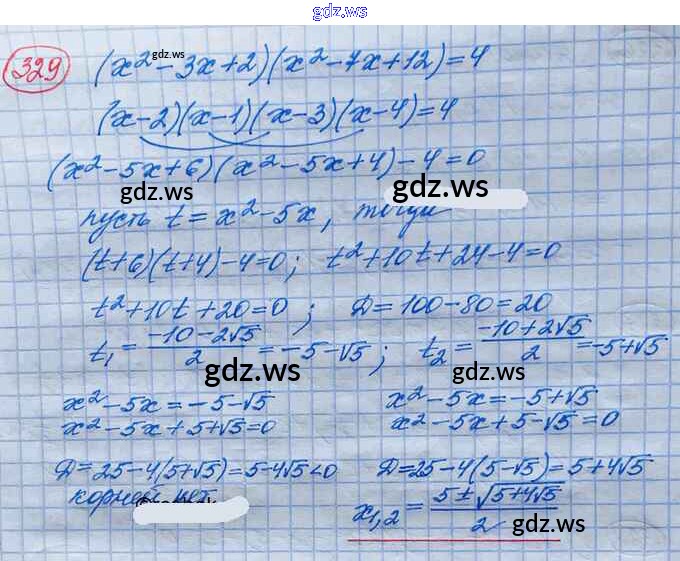 gdz.ws
329 (x² - 3x + 2)(x² - 7x + 12) = 4
gdz.ws
(x - 2)(x - 1)(x - 3)(x - 4) = 4
(x² - 5x + 6)(x² - 5x + 4) - 4 = 0
gdz.ws gdz.ws
пусть t = x² - 5x, тогда
(t + 6)(t + 4) - 4 = 0; t² + 10t + 24 - 4 = 0
t² + 10t + 20 = 0; D = 100 - 80 = 20
t₁ = (-10 - 2√5)/2 = -5 - √5; t₂ = (-10 + 2√5)/2 = -5 + √5
gdz.ws gdz.ws
x² - 5x = -5 - √5 x² - 5x = -5 + √5
x² - 5x + 5 + √5 = 0 x² - 5x + 5 - √5 = 0
D = 25 - 4(5 + √5) = 5 - 4√5 < 0 D = 25 - 4(5 - √5) = 5 + 4√5
корней нет
x₁,₂ = (5 ± √(5 + 4√5))/2
gdz.ws
gdz.ws